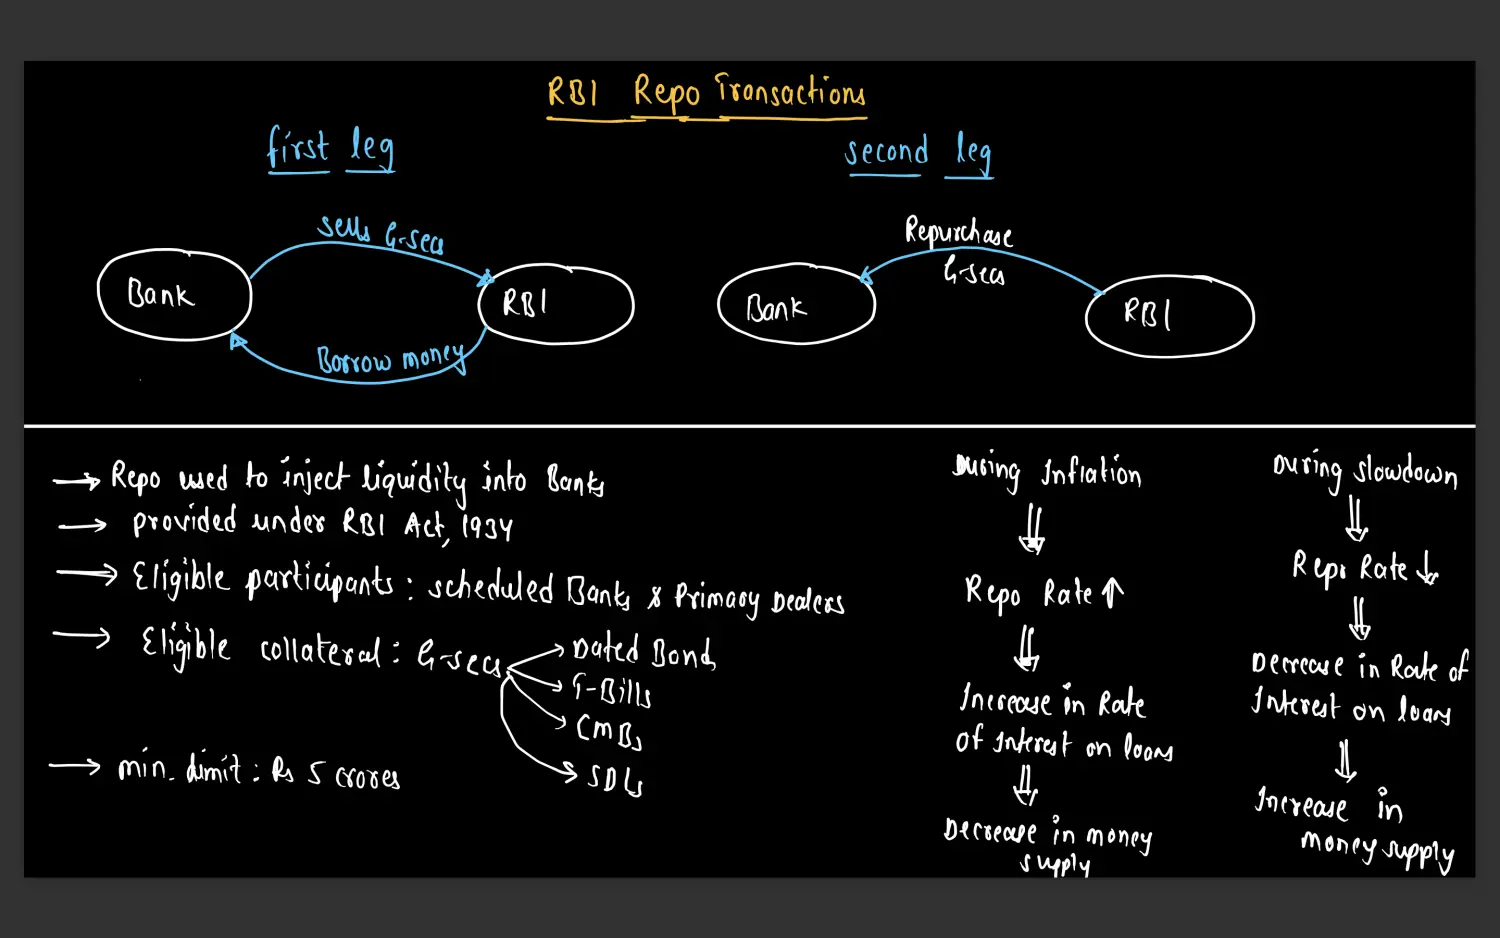 RBI Repo Transactions
first leg
second leg
sells G-secs
Bank
RBI
Borrow money
Repurchase
G-secs
Bank
RBI
→ Repo used to inject liquidity into Banks
→ provided under RBI Act, 1934
→ Eligible participants: scheduled Banks & Primary Dealers
→ Eligible collateral: G-secs
Dated Bonds
T-Bills
CMBs
SDLs
→ min. limit: Rs 5 crores
During Inflation
Repo Rate ↑
Increase in Rate
of Interest on loans
Decrease in money
supply
During slowdown
Repo Rate ↓
Decrease in Rate of
Interest on loans
Increase in
money supply